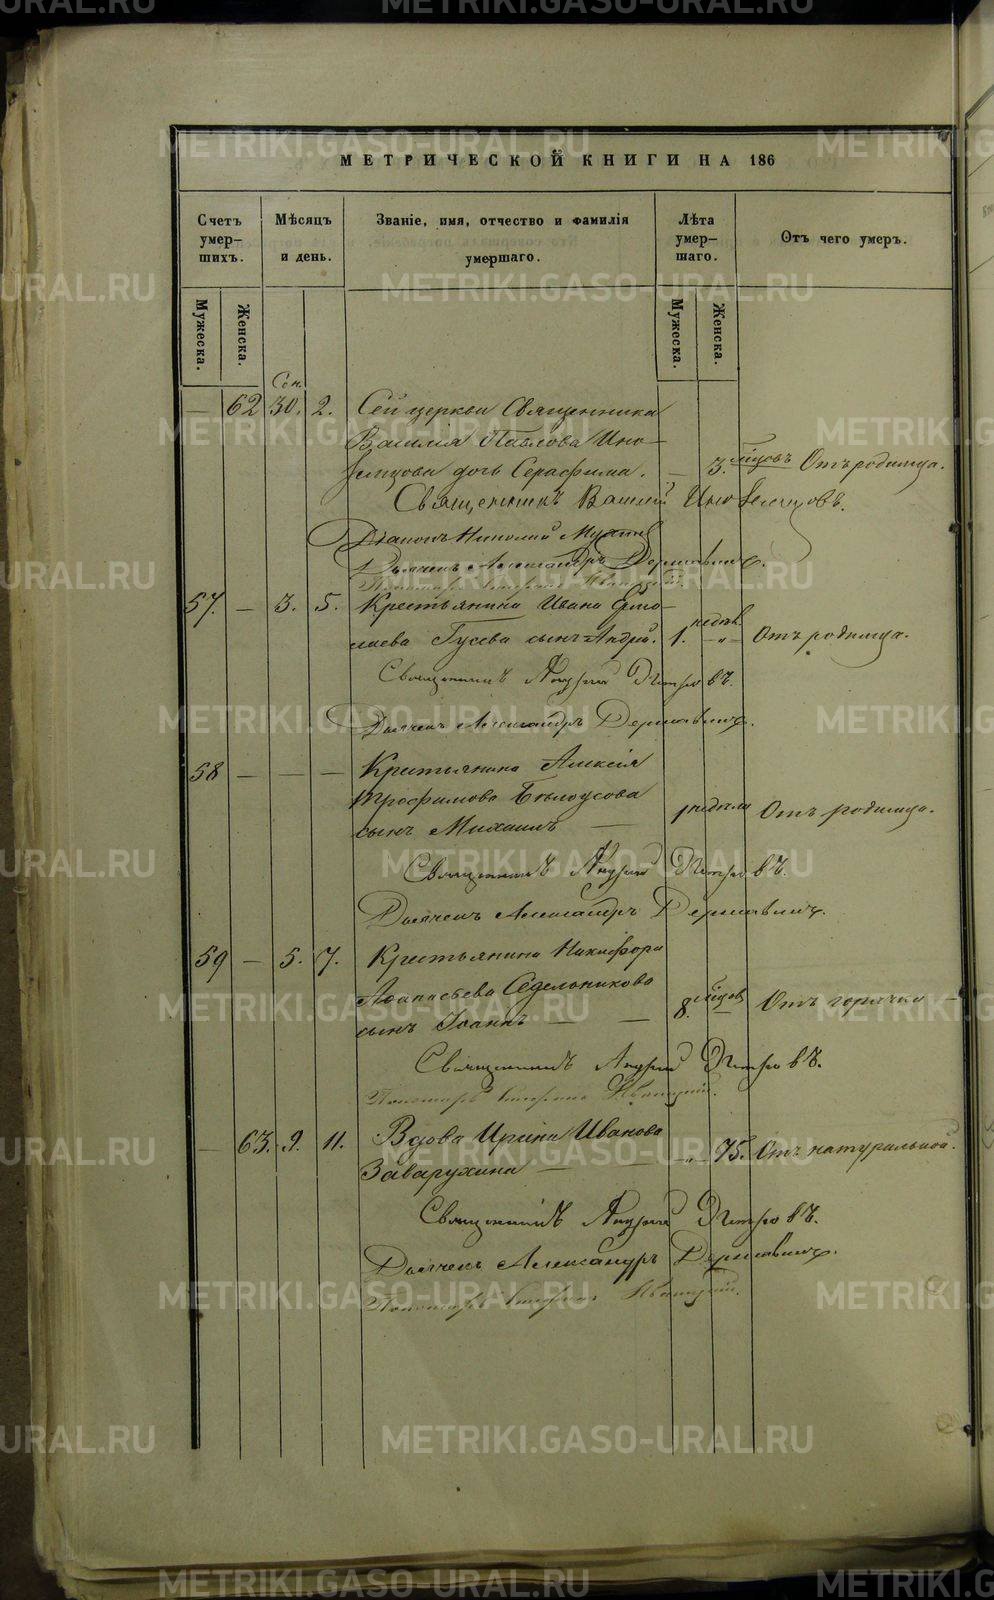 МЕТРИЧЕСКОЙ КНИГИ НА 186
Счетъ умер-шихъ.
Мѣсяцъ и день.
Званіе, имя, отчество и фамилія умершаго.
Лѣта умер-шаго.
Отъ чего умеръ.
Мужеска. Женска. Мужеска. Женска.
Сен.
— 62 30. 2. Сей церкви Священника
Василія Павлова Ино-
земцова дочь Серафима. — 3. мѣсцовъ Отъ родимца.
Священникъ Василій Иноземцовъ.
Діаконъ Николай
Дьячекъ Александръ Державинъ.
57. — 3. 5. Крестьянина Ивана Ермо-
лаева Гусева сынъ Андрей. 1. недѣл. „ Отъ родимца.
Священникъ Андрей Петровъ.
Дьячекъ Александръ Державинъ.
58 — — — Крестьянина Алексія
Трофимова Бѣлоусова
сынъ Михаилъ — 1 недѣли Отъ родимца.
Священникъ Андрей Петровъ.
Дьячекъ Александръ Державинъ.
59 — 5. 7. Крестьянина Никифора
Афанасьева Седельникова
сынъ Іоаннъ — — 8. мѣсцов — Отъ горячки —
Священникъ Андрей Петровъ.
Пономарь
— 63. 9. 11. Вдова Ирина Иванова
Заварухина — — „ 75. Отъ натуральной.
Священникъ Андрей Петровъ.
Дьячекъ Александръ Державинъ.
Пономарь
METRIKI.GASO-URAL.RU